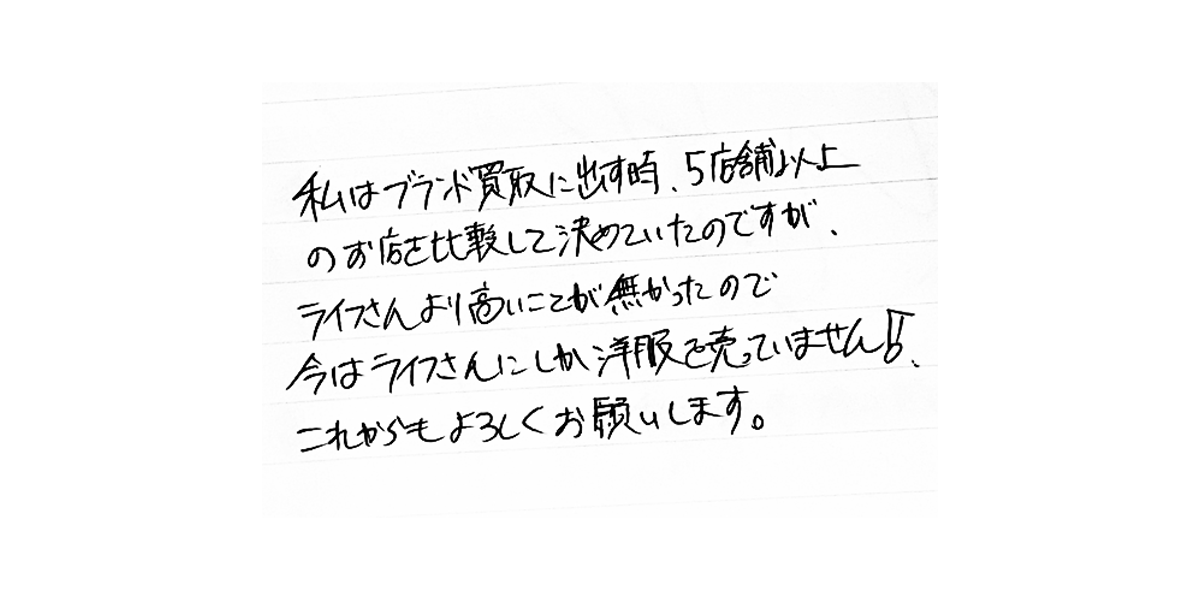 私はブランド買取に出す時、5店舗以上
のお店を比較して決めていたのですが、
ライフさんより高いことが無かったので
今はライフさんにしか洋服を売っていません!!、
これからもよろしくお願いします。